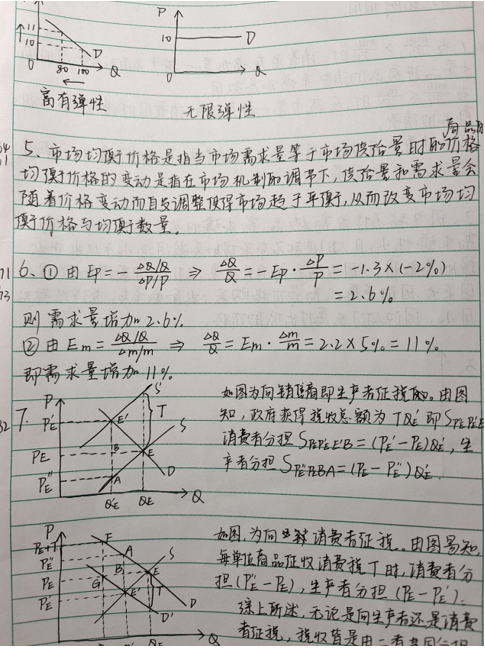 P
11
10
D
0
80
100
Q
富有弹性
P
10
D
0
Q
无限弹性
5、市场均衡价格是指当市场需求量等于市场供给量时的价格
均衡价格的变动是指在市场机制的调节下,供给量和需求量会
随着价格变动而自发调整使得市场趋于平衡,从而改变市场均
衡价格与均衡数量。
6、① 由 EP = - ΔQ/Q / ΔP/P ⇒ ΔQ/Q = -EP · ΔP/P = -1.3×(-2%)
= 2.6%
则需求量增加 2.6%.
② 由 Em = ΔQ/Q / Δm/m ⇒ ΔQ/Q = Em · Δm/m = 2.2×5% = 11%
即需求量增加 11%.
7、
P
S'
T
S
PE'
E'
PE
B
E
PE''
A
D
0
QE'
QE
Q
如图为向销售商即生产者征税 由图
知,政府获得税收总额为 TQE' 即
消费者分担 SPEPE'E'B = (PE'-PE)QE', 生
产者分担 SPEPE''BA = (PE-PE'')QE'.
P
F
PE+T
A
PE''
B
S
PE
G
E
PE'
E'
T
D'
D
Q
如图,为向消费者征税。由图易知,
每单位商品征收消费税T时,消费者分
担(PE''-PE),生产者分担(PE-PE').
综上所述,无论是向生产者还是消费
者征税,税收皆是由二者共同分担